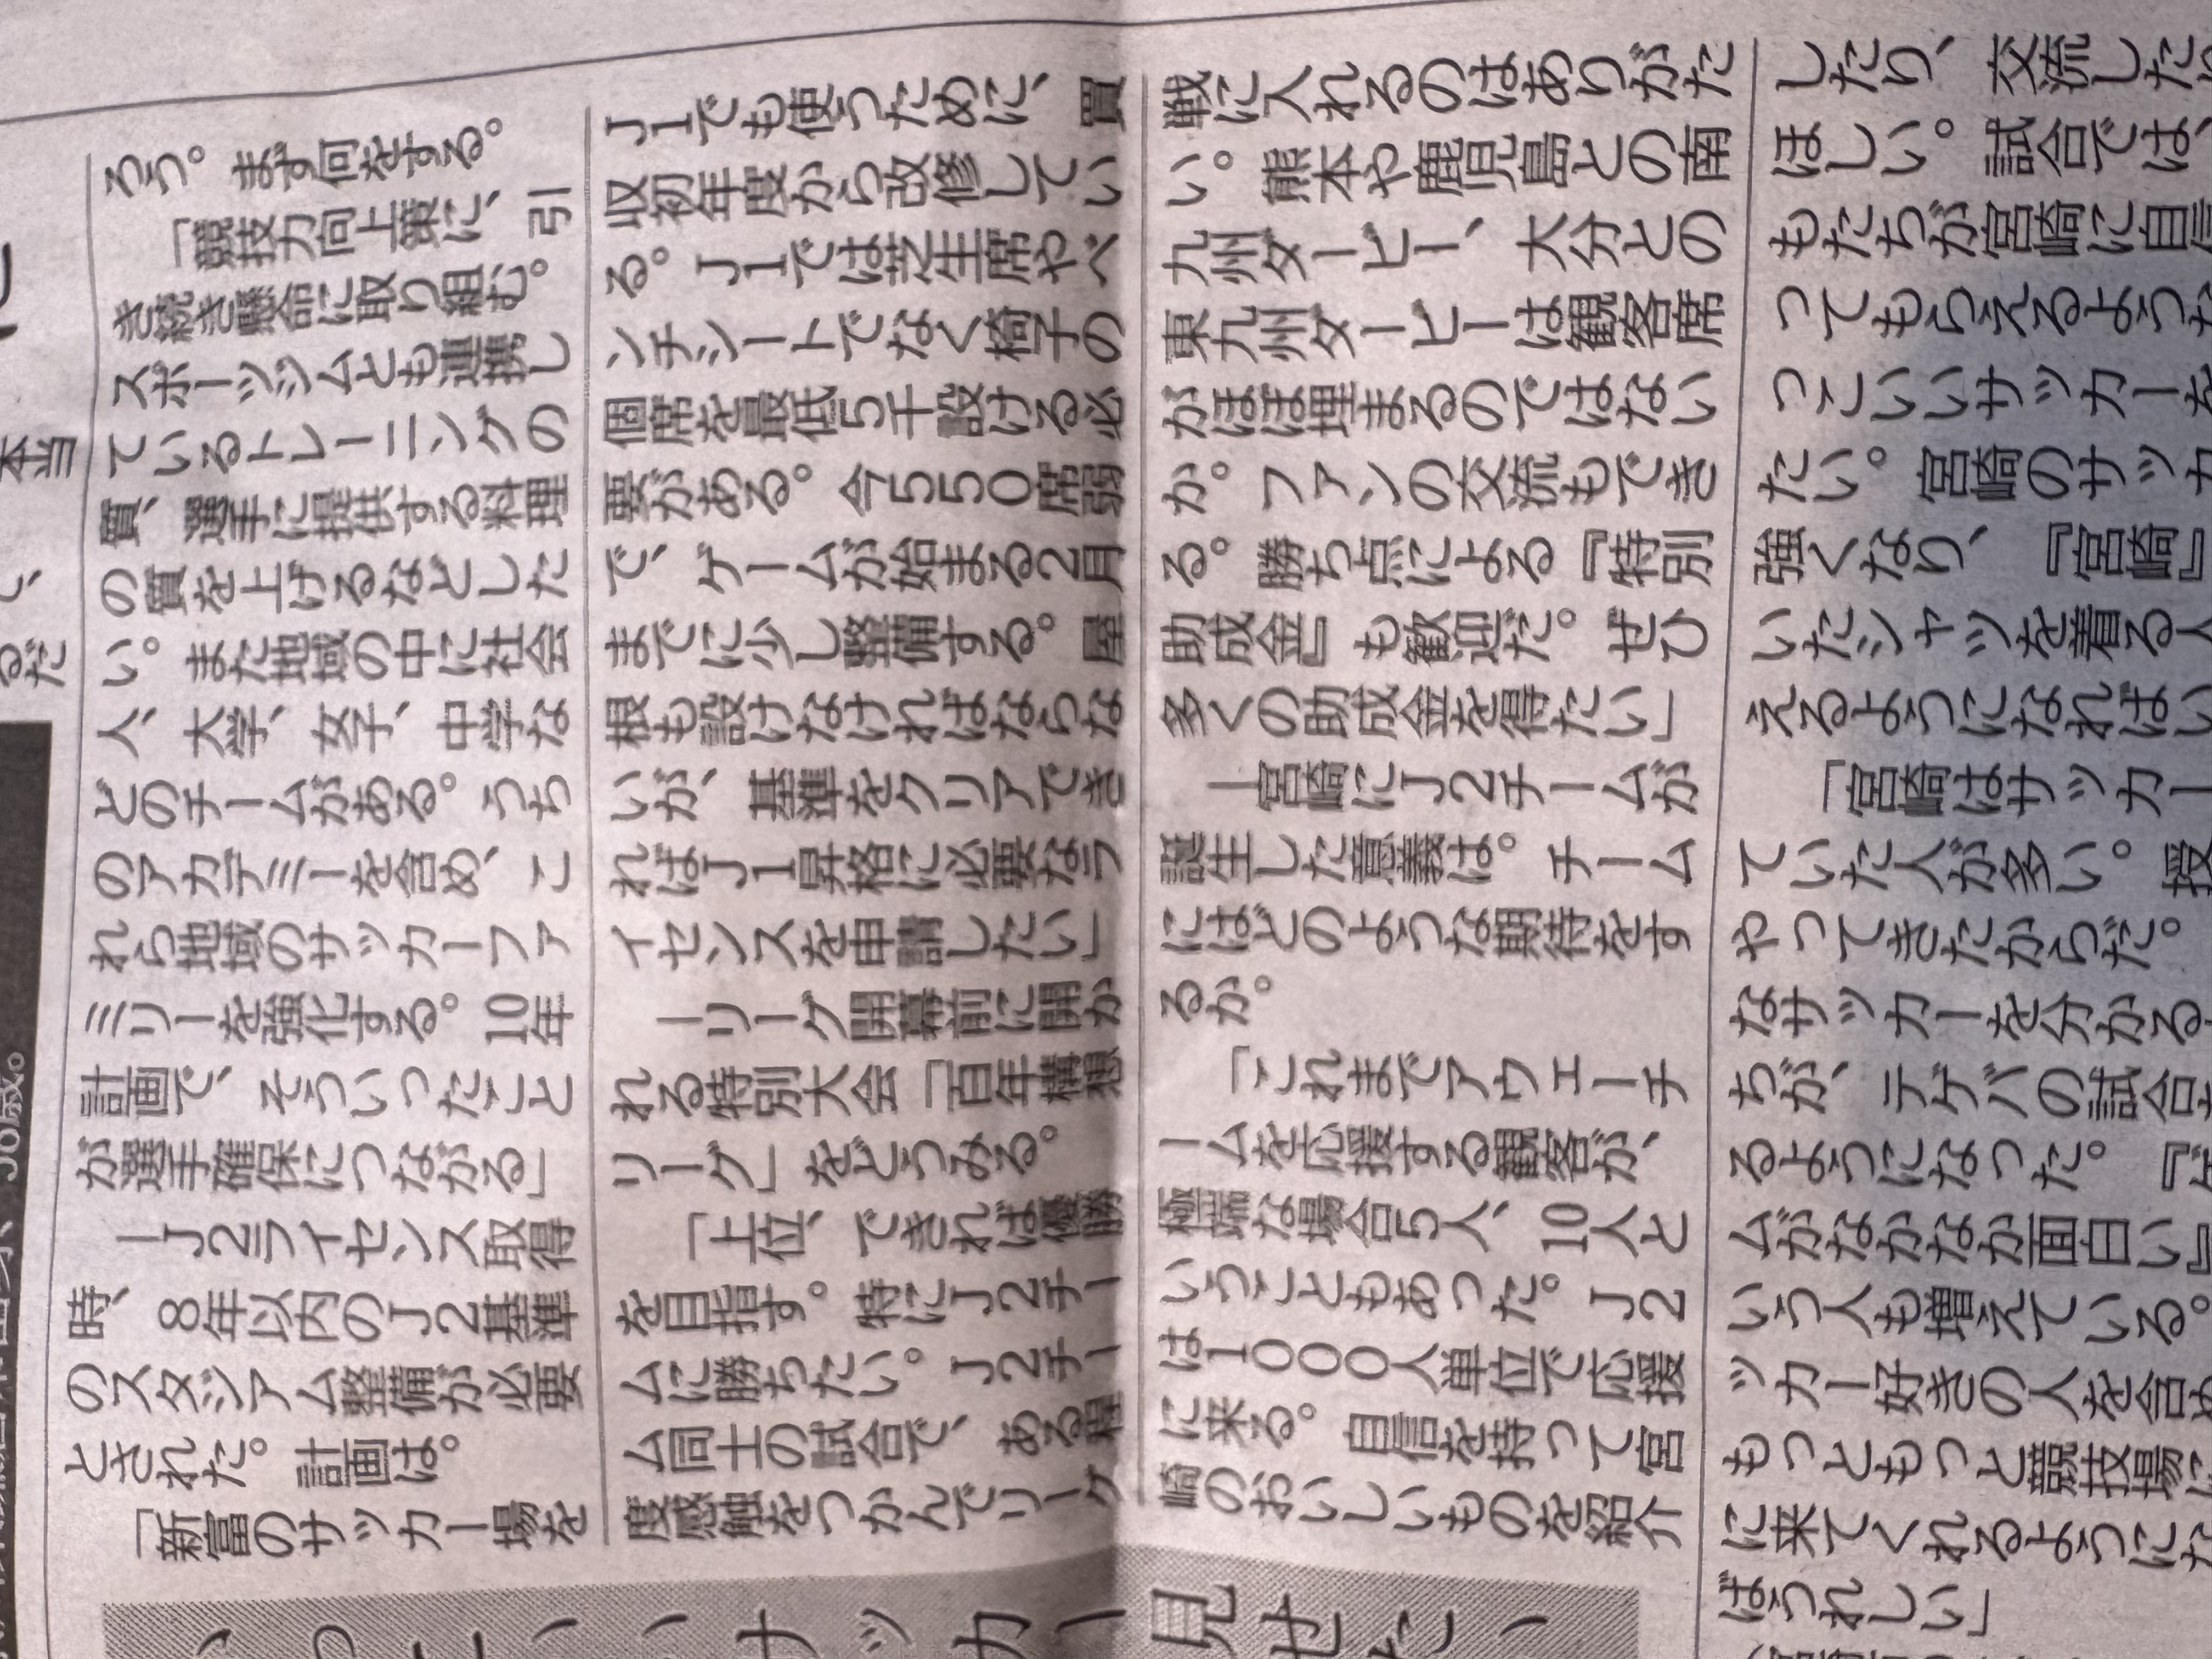 本当
るだ
ろう。まず何をする。
「競技力向上策に、引
き続き懸命に取り組む。
スポーツジムとも連携し
ているトレーニングの
質、選手に提供する料理
の質を上げるなどした
い。また地域の中に社会
人、大学、女子、中学な
どのチームがある。うち
のアカデミーを含め、こ
れら地域のサッカーファ
ミリーを強化する。10年
計画で、そういったこと
が選手確保につながる」
―J2ライセンス取得
時、8年以内のJ2基準
のスタジアム整備が必要
とされた。計画は。
「新富のサッカー場を
J1でも使うために、買
収初年度から改修してい
る。J1では芝生席やベ
ンチシートでなく椅子の
個席を最低5千設ける必
要がある。今550席弱
で、ゲームが始まる2月
までに少し整備する。屋
根も設けなければならな
いが、基準をクリアでき
ればJ1昇格に必要なラ
イセンスを申請したい」
―リーグ開幕前に開か
れる特別大会「百年構想
リーグ」をどうみる。
「上位、できれば優勝
を目指す。特にJ2チー
ムに勝ちたい。J2チー
ム同士の試合で、ある程
度感触をつかんでリーグ
戦に入れるのはありがた
い。熊本や鹿児島との南
九州ダービー、大分との
東九州ダービーは観客席
がほぼ埋まるのではない
か。ファンの交流もでき
る。勝ち点による『特別
助成金』も歓迎だ。ぜひ
多くの助成金を得たい」
―宮崎にJ2チームが
誕生した意義は。チーム
にはどのような期待をす
るか。
「これまでアウェーチ
ームを応援する観客が、
極端な場合5人、10人と
いうこともあった。J2
は1000人単位で応援
に来る。自信を持って宮
崎のおいしいものを紹介
したり、交流した
ほしい。試合では、
もたちが宮崎に自信
ってもらえるような
っこいいサッカーを
たい。宮崎のサッカ
強くなり、『宮崎』
いたシャツを着る人
えるようになればい
「宮崎はサッカー
ていた人が多い。授
やってきたからだ。
なサッカーを分かる
ちが、テゲバの試合
るようになった。『ゲ
ムがなかなか面白い』
いう人も増えている。
ッカー好きの人を含め
もっともっと競技場に
に来てくれるようにな
ばうれしい」
っこいいサッカー見せたい